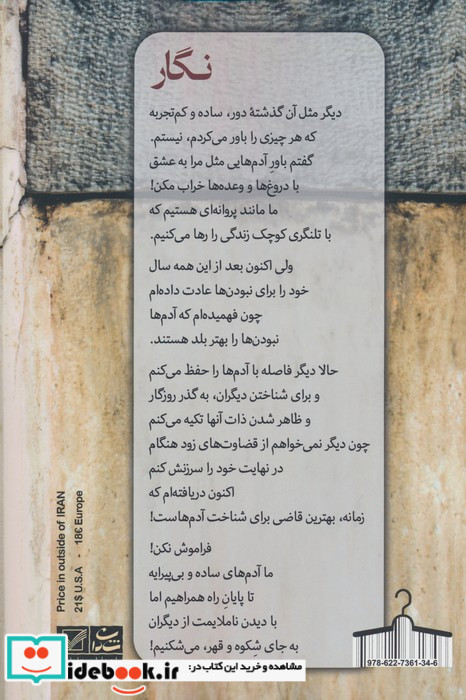 نگار
دیگر مثل آن گذشتهٔ دور، ساده و کم‌تجربه
که هر چیزی را باور می‌کردم، نیستم.
گفتم باورِ آدم‌هایی مثل مرا به عشق
با دروغ‌ها و وعده‌ها خراب مکن!
ما مانند پروانه‌ای هستیم که
با تلنگری کوچک زندگی را رها می‌کنیم.
ولی اکنون بعد از این همه سال
خود را برای نبودن‌ها عادت داده‌ام
چون فهمیده‌ام که آدم‌ها
نبودن‌ها را بهتر بلد هستند.
حالا دیگر فاصله با آدم‌ها را حفظ می‌کنم
و برای شناختن دیگران، به گذر روزگار
و ظاهر شدن ذات آنها تکیه می‌کنم
چون دیگر نمی‌خواهم از قضاوت‌های زود هنگام
در نهایت خود را سرزنش کنم
اکنون دریافته‌ام که
زمانه، بهترین قاضی برای شناخت آدم‌هاست!
فراموش نکن!
ما آدم‌های ساده و بی‌پیرایه
تا پایانِ راه همراهیم اما
با دیدن ناملایمت از دیگران
به جای شِکوه و قهر، می‌شکنیم!
Price in outside of IRAN
21$ U.S.A - 18€ Europe
978-622-7361-34-6
idebook.ir
مشاهده و خرید این کتاب در: